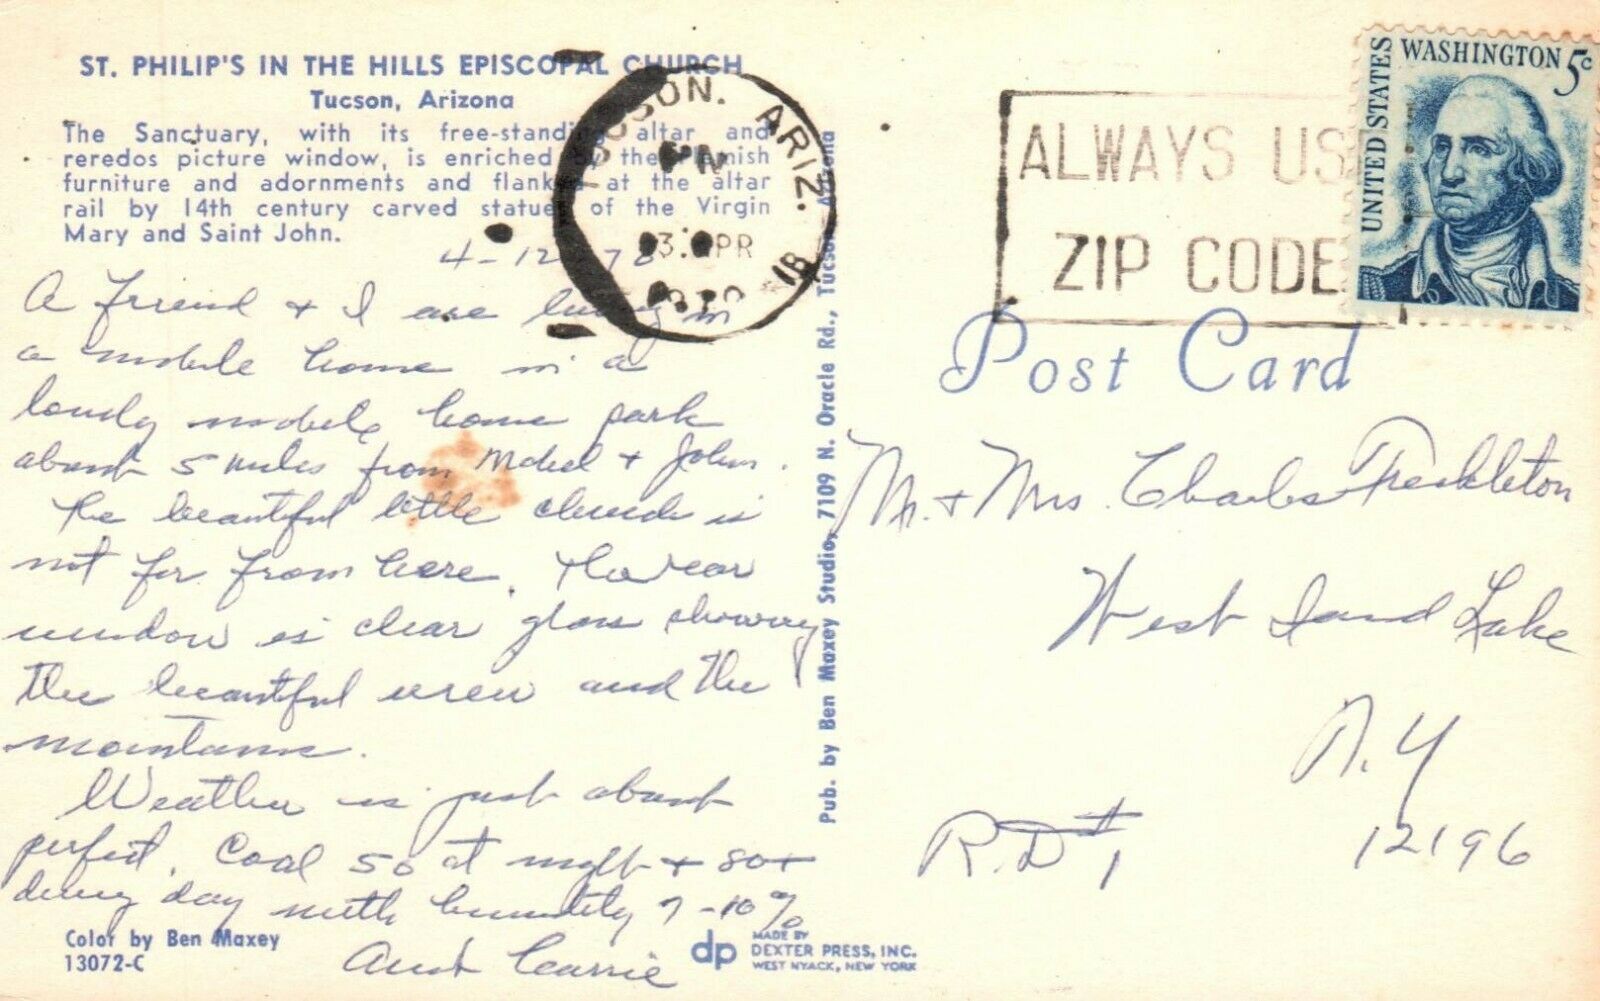 ST. PHILIP'S IN THE HILLS EPISCOPAL CHURCH
Tucson, Arizona
The Sanctuary, with its free-standing altar and
reredos picture window, is enriched by the Flemish
furniture and adornments and flanked at the altar
rail by 14th century carved statues of the Virgin
Mary and Saint John.
4-12-70
A friend & I are living in
a mobile home in a
lovely mobile home park
about 5 miles from & John.
The beautiful little church is
not far from here. The rear
window is clear glass showing
the beautiful view and the
mountains.
Weather is just about
perfect. Cool 50 at night + 80+
during day with humidity 7-10%
Aunt Carrie
Color by Ben Maxey
13072-C
dp
MADE BY
DEXTER PRESS, INC.
WEST NYACK, NEW YORK
Pub. by Ben Maxey Studio, 7109 N. Oracle Rd., Tucson, Arizona
TUCSON, ARIZ.
PM
13 APR
1970
1B
ALWAYS USE
ZIP CODE
UNITED STATES
WASHINGTON 5c
Post Card
Mr. & Mrs. Charles Freckleton
West Sand Lake
N.Y
R.D #1
12196